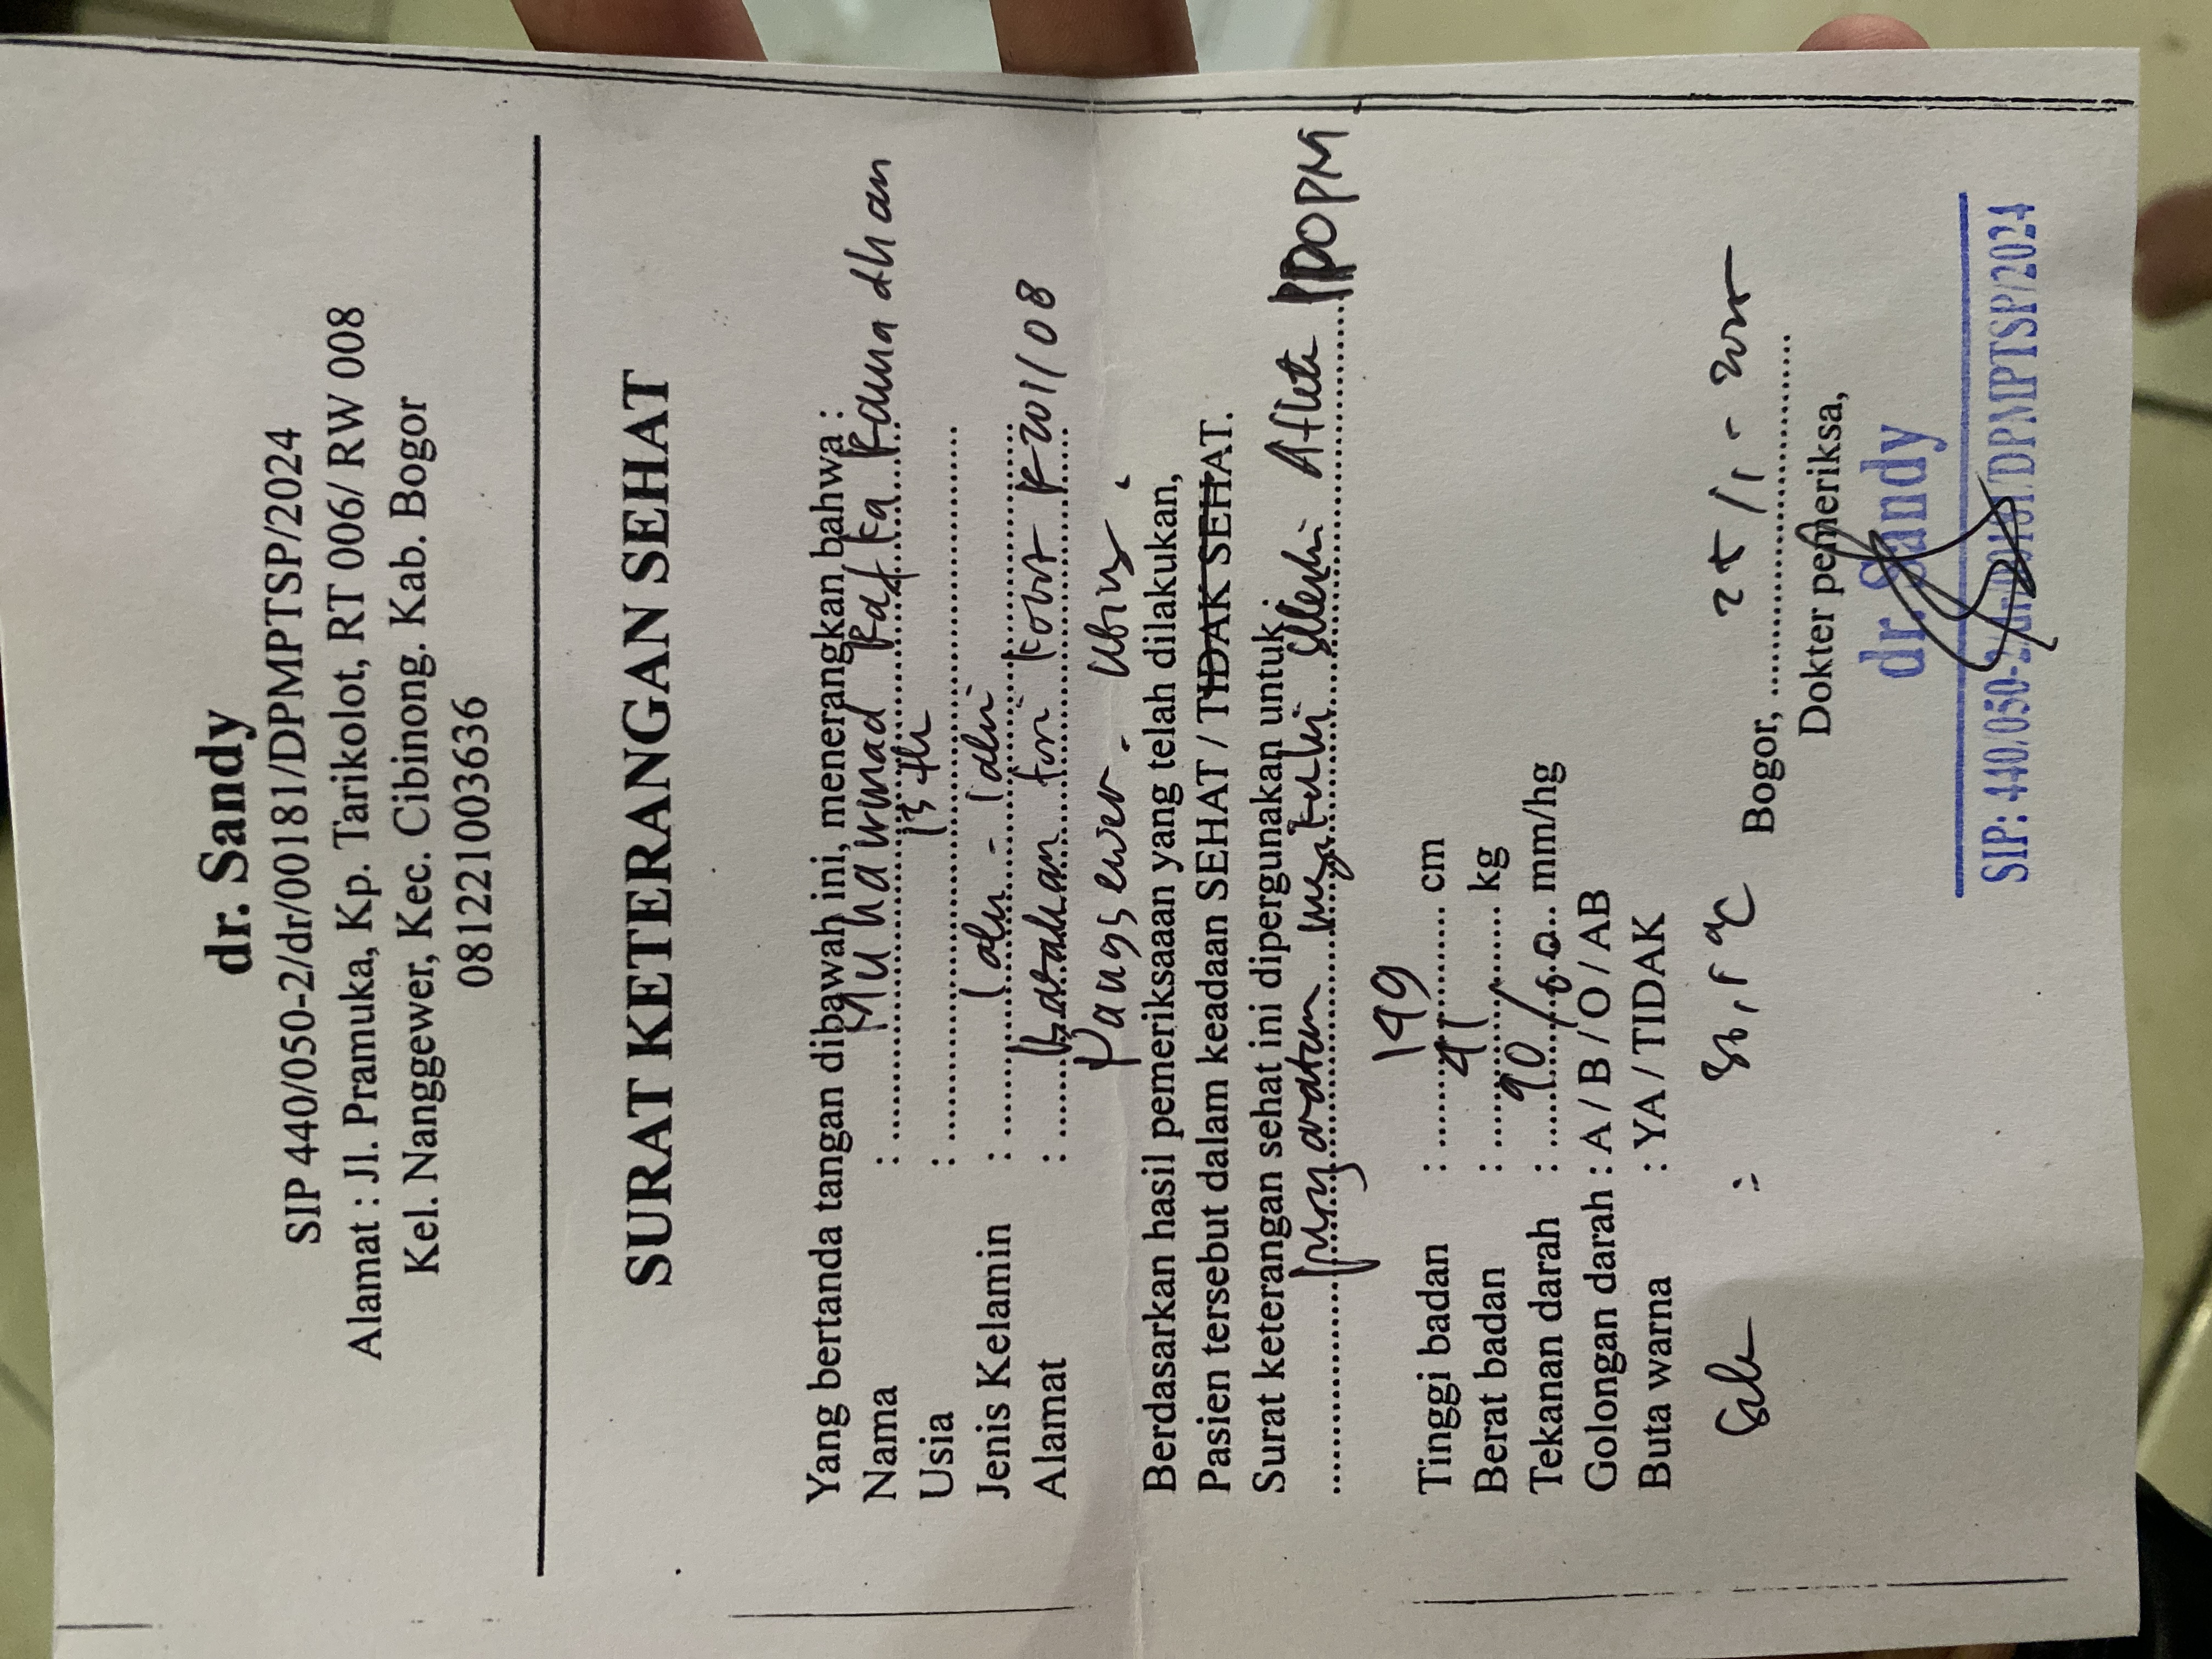 dr. Sandy
SIP 440/050-2/dr/00181/DPMPTSP/2024
Alamat : Jl. Pramuka, Kp. Tarikolot, RT 006/ RW 008
Kel. Nanggewer, Kec. Cibinong. Kab. Bogor
081221003636
SURAT KETERANGAN SEHAT
Yang bertanda tangan dibawah ini, menerangkan bahwa :
Nama : Muhammad Rama dhan
Usia : 13 th
Jenis Kelamin : Laki - Laki
Alamat : /08
Berdasarkan hasil pemeriksaan yang telah dilakukan,
Pasien tersebut dalam keadaan SEHAT / TIDAK SEHAT.
Surat keterangan sehat ini dipergunakan untuk
persyaratan mengikuti seleksi Atlet PPOPM
Tinggi badan : 149 cm
Berat badan : 41 kg
Tekanan darah : 90/60 mm/hg
Golongan darah : A / B / O / AB
Buta warna : YA / TIDAK
Bogor, 25/1-2025
Dokter pemeriksa,
dr. Sandy
SIP: 440/050-2/dr/00181/DPMPTSP/2024